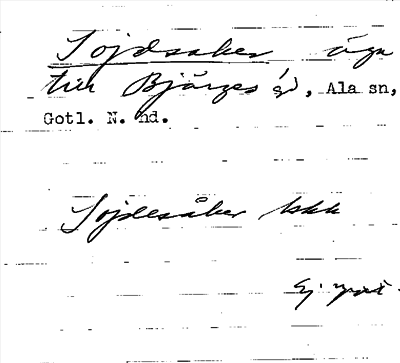 Sojdsaker äga
till Bjärges gd, Ala sn,
Gotl. N. hd.
Sojdesåker
Ej